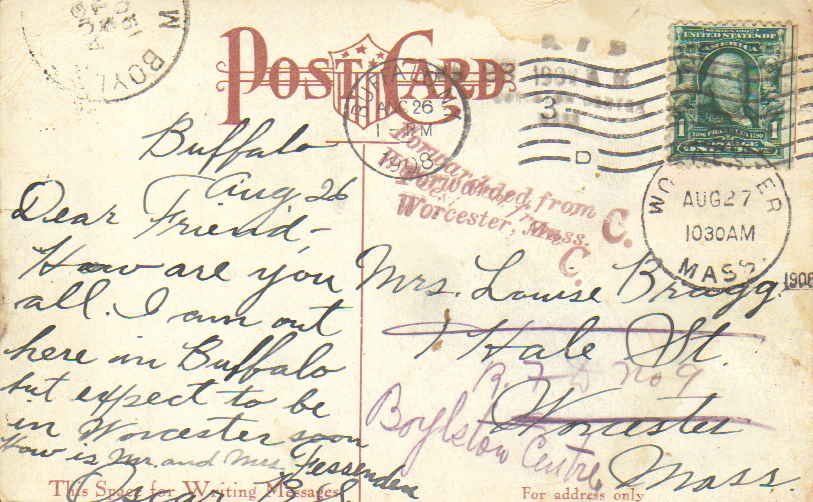 POST CARD
BUFFALO, N.Y.
AUG 26
1 - PM
1908
3
D
UNITED STATES OF
AMERICA
1
WORCESTER
AUG 27
1030 AM
MASS.
1908
BOYL
Forwarded from
Worcester, Mass.
C.
C.
Buffalo
Aug 26
Dear Friend-
How are you
all. I am out
here in Buffalo
but expect to be
in Worcester soon
How is Mr. and Mrs. Fessenden
Mrs. Louise Bragg.
1 Hale St.
R. F. D. No 9
Worcester
Boylston Centre,
Mass.
This Space for Writing Messages
For address only